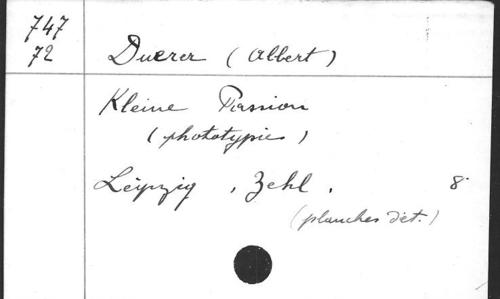 747
72
Duerer (Albert)
Kleine Passion
(phototypie)
Leipzig, Zehl. 8°
(planches dét.)